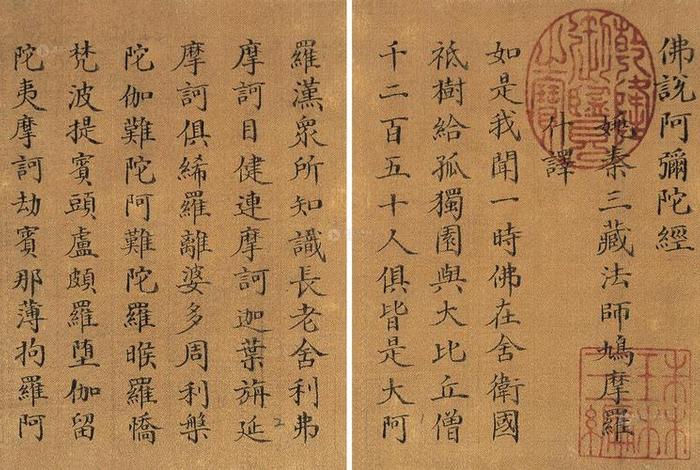 佛說阿彌陀經
姚秦三藏法師鳩摩羅
什譯
乾隆御覽之寶
如是我聞一時佛在舍衛國
祇樹給孤獨園與大比丘僧
千二百五十人俱皆是大阿
羅漢衆所知識長老舍利弗
摩訶目健連摩訶迦葉旃延
摩訶俱絺羅離婆多周利槃
陀伽難陀阿難陀羅睺羅憍
梵波提賓頭盧頗羅墮伽留
陀夷摩訶劫賓那薄拘羅阿